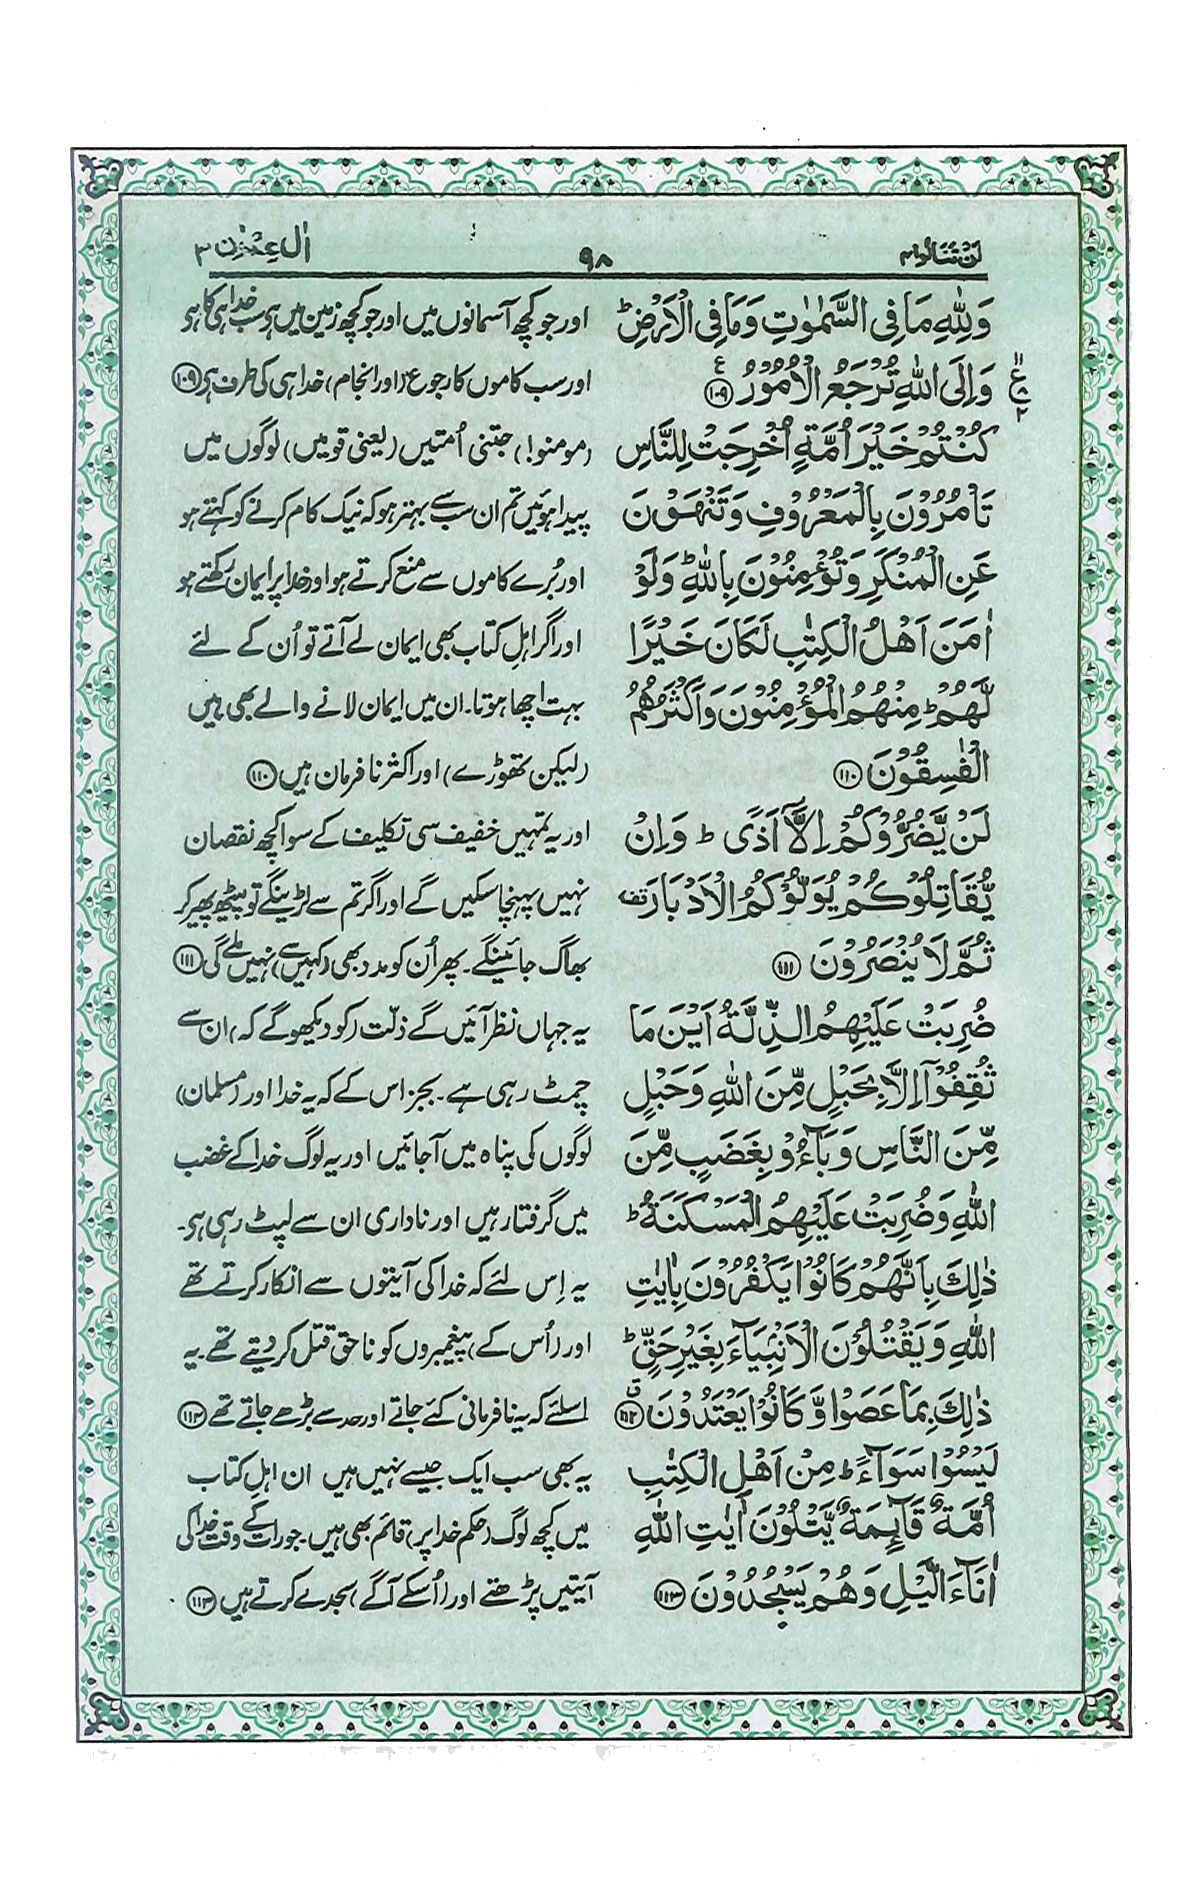 لَنْ تَنَالُوا ۴
۹۸
اٰل عِمْرٰن ۳
وَلِلّٰهِ مَا فِی السَّمٰوٰتِ وَمَا فِی الْاَرْضِ ؕ
وَاِلَی اللّٰهِ تُرْجَعُ الْاُمُوْرُ ﴿۱۰۹﴾ ع
كُنْتُمْ خَیْرَ اُمَّةٍ اُخْرِجَتْ لِلنَّاسِ
تَاْمُرُوْنَ بِالْمَعْرُوْفِ وَتَنْهَوْنَ
عَنِ الْمُنْكَرِ وَتُؤْمِنُوْنَ بِاللّٰهِ ؕ وَلَوْ
اٰمَنَ اَهْلُ الْكِتٰبِ لَكَانَ خَیْرًا
لَّهُمْ ؕ مِنْهُمُ الْمُؤْمِنُوْنَ وَاَكْثَرُهُمُ
الْفٰسِقُوْنَ ﴿۱۱۰﴾
لَنْ یَّضُرُّوْكُمْ اِلَّاۤ اَذًی ؕ وَاِنْ
یُّقَاتِلُوْكُمْ یُوَلُّوْكُمُ الْاَدْبَارَ قف
ثُمَّ لَا یُنْصَرُوْنَ ﴿۱۱۱﴾
ضُرِبَتْ عَلَیْهِمُ الذِّلَّةُ اَیْنَ مَا
ثُقِفُوْۤا اِلَّا بِحَبْلٍ مِّنَ اللّٰهِ وَحَبْلٍ
مِّنَ النَّاسِ وَبَآءُوْ بِغَضَبٍ مِّنَ
اللّٰهِ وَضُرِبَتْ عَلَیْهِمُ الْمَسْكَنَةُ ؕ
ذٰلِكَ بِاَنَّهُمْ كَانُوْا یَكْفُرُوْنَ بِاٰیٰتِ
اللّٰهِ وَیَقْتُلُوْنَ الْاَنْۢبِیَآءَ بِغَیْرِ حَقٍّ ؕ
ذٰلِكَ بِمَا عَصَوْا وَّكَانُوْا یَعْتَدُوْنَ ﴿۱۱۲﴾ ق
لَیْسُوْا سَوَآءً ؕ مِنْ اَهْلِ الْكِتٰبِ
اُمَّةٌ قَآئِمَةٌ یَّتْلُوْنَ اٰیٰتِ اللّٰهِ
اٰنَآءَ الَّیْلِ وَهُمْ یَسْجُدُوْنَ ﴿۱۱۳﴾
اور جو کچھ آسمانوں میں اور جو کچھ زمین میں ہی سب خدا ہی کا ہی
اور سب کاموں کا رجوع (اور انجام) خدا ہی کی طرف ہی ﴿۱۰۹﴾
(مومنو!) جتنی اُمتیں (یعنی قومیں) لوگوں میں
پیدا ہوئیں تم ان سب سے بہتر ہو کہ نیک کام کرنے کو کہتے ہو
اور بُرے کاموں سے منع کرتے ہو اور خدا پر ایمان رکھتے ہو
اور اگر اہلِ کتاب بھی ایمان لے آتے تو اُن کے لئے
بہت اچھا ہوتا۔ ان میں ایمان لانے والے بھی ہیں
(لیکن تھوڑے) اور اکثر نافرمان ہیں ﴿۱۱۰﴾
اور یہ تمہیں خفیف سی تکلیف کے سوا کچھ نقصان
نہیں پہنچا سکیں گے اور اگر تم سے لڑینگے تو پیٹھ پھیر کر
بھاگ جائینگے۔ پھر اُن کو مدد بھی (کہیں سے) نہیں ملے گی ﴿۱۱۱﴾
یہ جہاں نظر آئیں گے ذلّت (کو دیکھو گے کہ) ان سے
چمٹ رہی ہے۔ بجز اس کے کہ یہ خدا اور (مسلمان)
لوگوں کی پناہ میں آجائیں اور یہ لوگ خدا کے غضب
میں گرفتار ہیں اور ناداری ان سے لپٹ رہی ہی۔
یہ اِس لئے کہ خدا کی آیتوں سے انکار کرتے تھے
اور (اُس کے) پیغمبروں کو ناحق قتل کر دیتے تھے۔ یہ
اسلئے کہ یہ نافرمانی کئے جاتے اور حد سے بڑھے جاتے تھے ﴿۱۱۲﴾
یہ بھی سب ایک جیسے نہیں ہیں ان اہلِ کتاب
میں کچھ لوگ (حکم خدا پر) قائم بھی ہیں۔ جو رات کے وقت خدا کی
آیتیں پڑھتے اور (اُسکے آگے) سجدے کرتے ہیں ﴿۱۱۳﴾